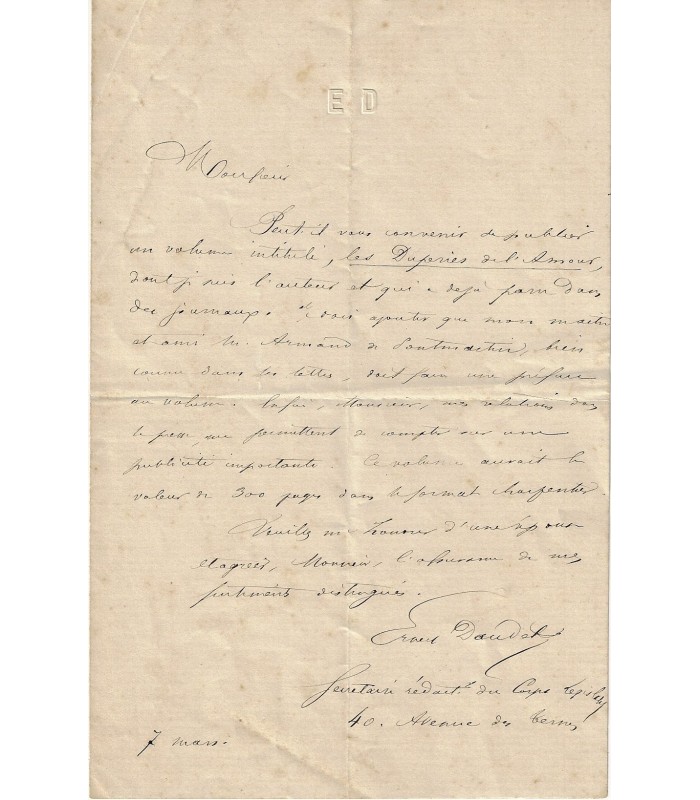 E D
Monsieur
Peut-il vous convenir de publier
un volume intitulé, les Duperies de l'Amour,
dont je suis l'auteur et qui a dejà paru dans
des journaux. Je dois ajouter que mon maître
et ami M. Armand de Pontmartin, bien
connu dans les lettres, doit faire une préface
au volume. Enfin, Monsieur, mes relations dans
la presse, me permettent de compter sur une
publicité importante. Ce volume aurait la
valeur de 300 pages dans le format Charpentier.
Veuillez m'honorer d'une réponse
et agréer, Monsieur, l'assurance de mes
sentiments distingués.
Ernest Daudet
Secrétaire rédactr du Corps Législatif
40. Avenue des Ternes
7 mars.